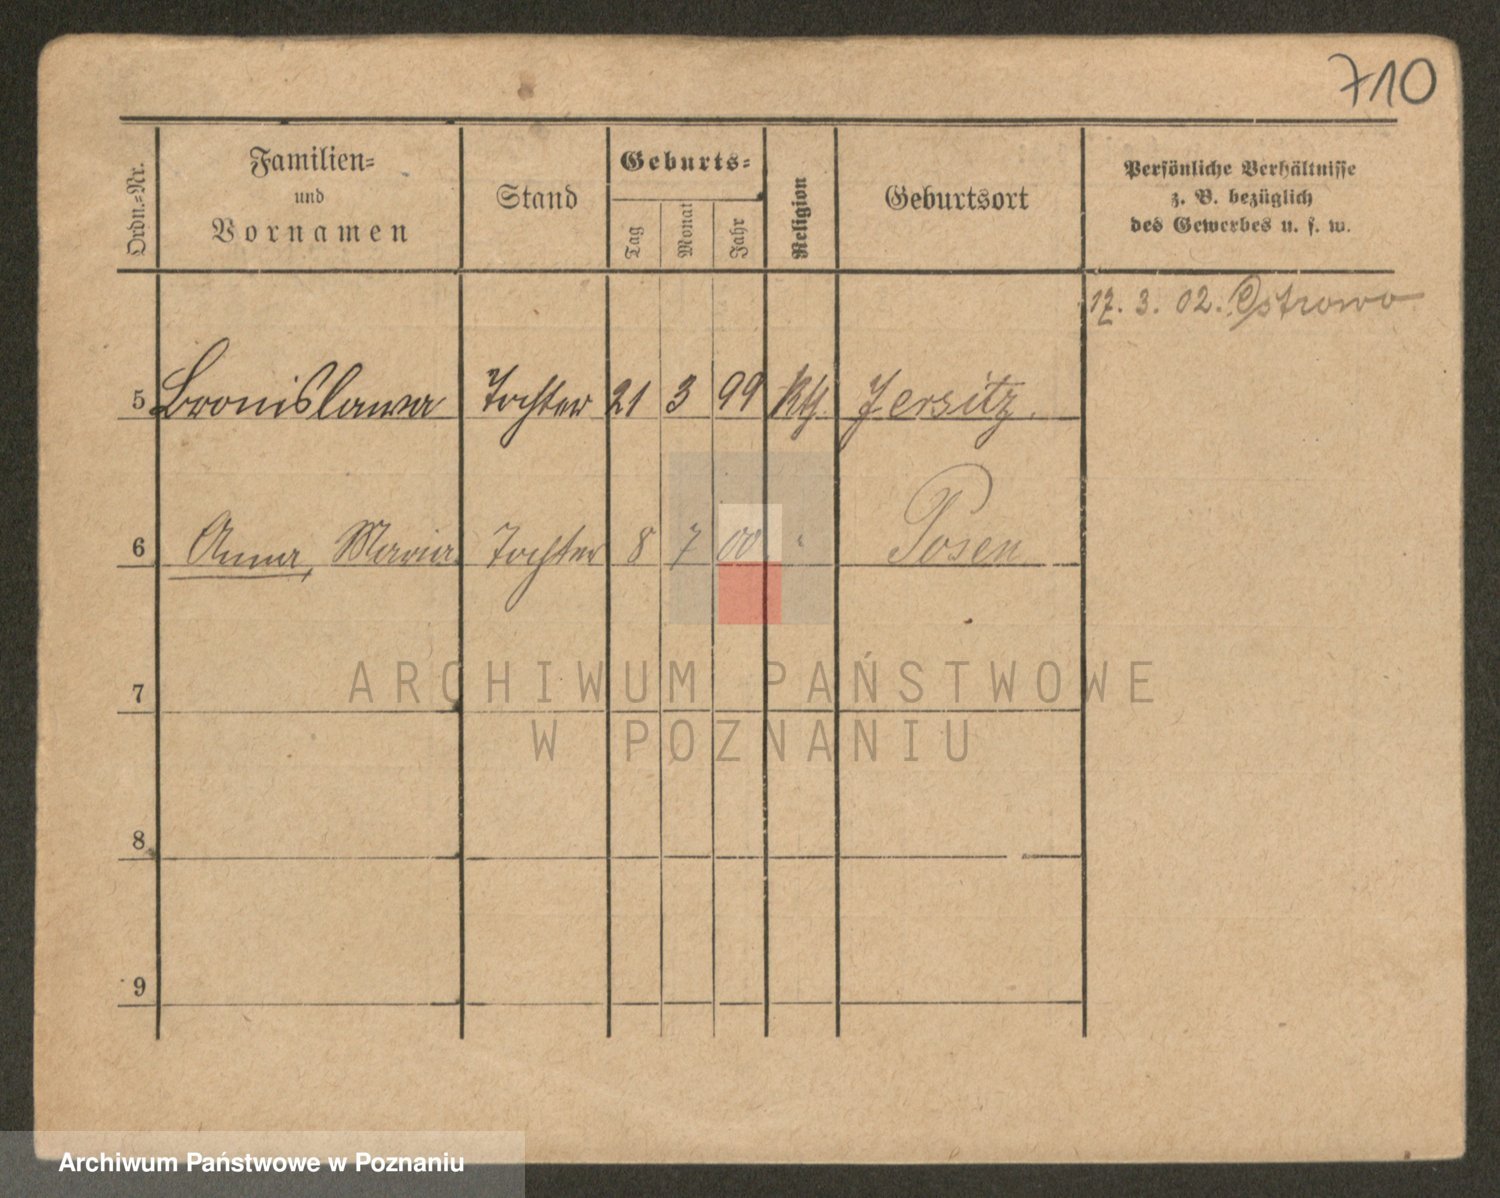 710
Ordn.-Nr.
Familien-
und
Vornamen
Stand
Geburts-
Tag
Monat
Jahr
Religion
Geburtsort
Persönliche Verhältnisse
z. B. bezüglich
des Gewerbes u. s. w.
17. 3. 02. Ostrowo
5 Bronislawa Tochter 21 3 99 kth. Jersitz.
6 Anna, Maria Tochter 8 7 00 " Posen
7
8
9
ARCHIWUM PAŃSTWOWE
W POZNANIU
Archiwum Państwowe w Poznaniu